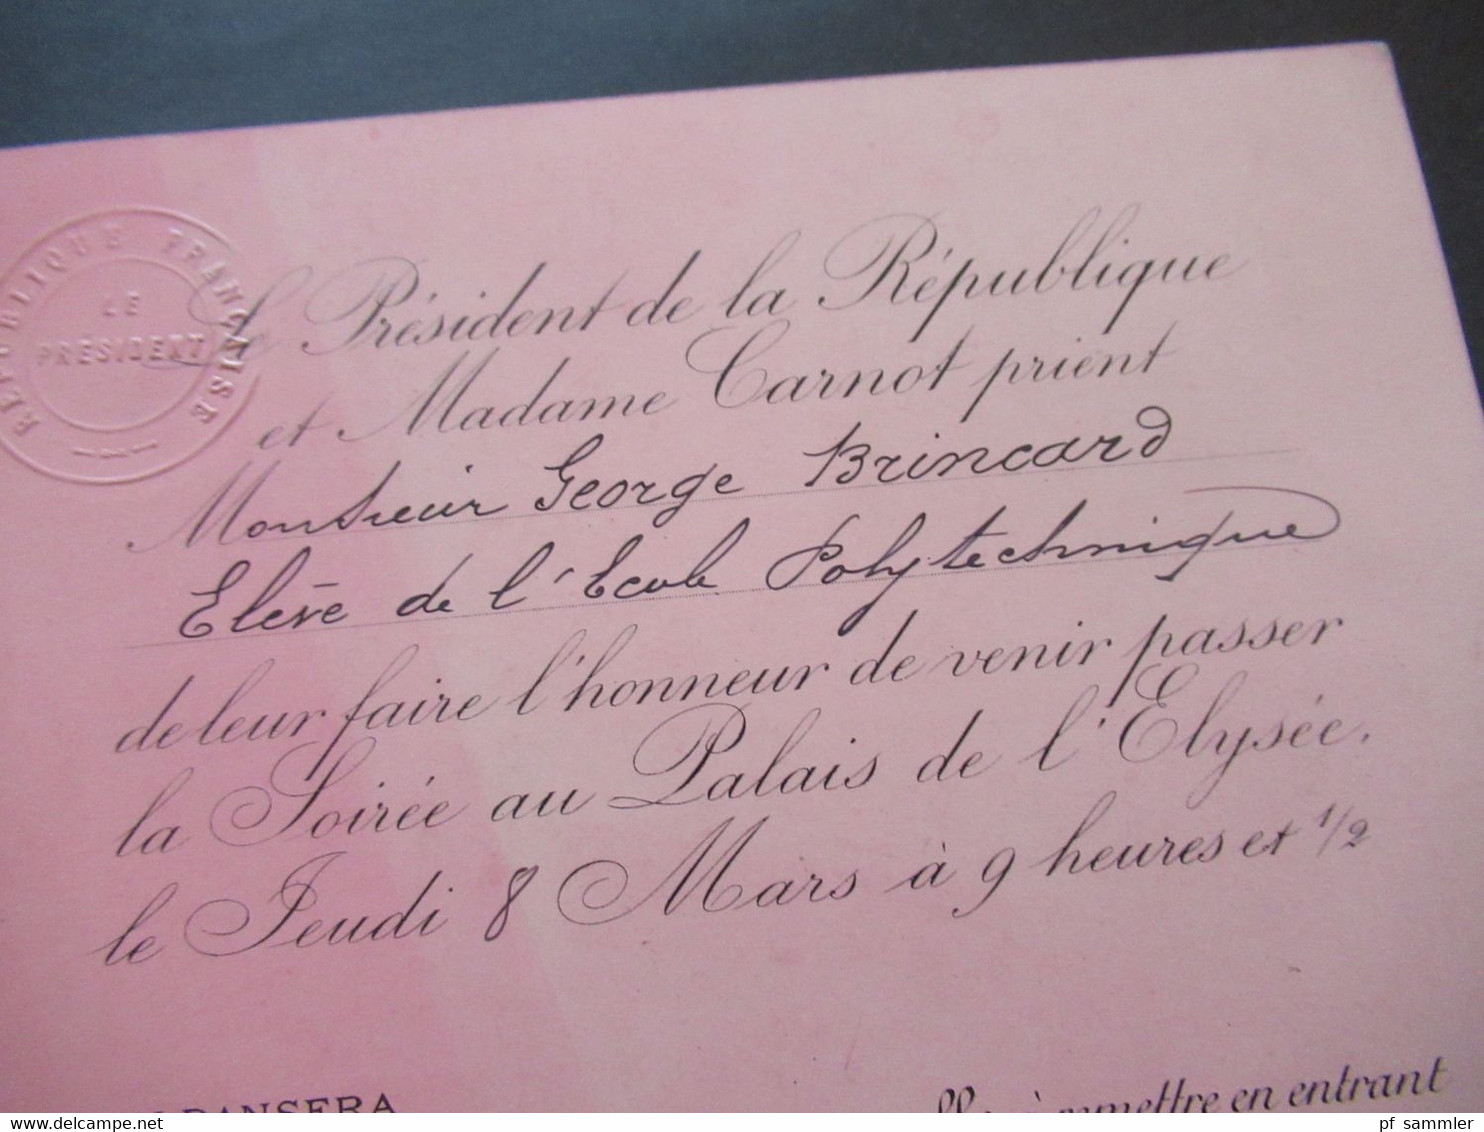 RÉPUBLIQUE FRANÇAISE
LE
PRÉSIDENT
Le Président de la République
et Madame Carnot prient
Monsieur George Brincard
Elève de l'Ecole Polytechnique
de leur faire l'honneur de venir passer
la Soirée au Palais de l'Elysée,
le Jeudi 8 Mars à 9 heures et 1/2
DANSERA
à remettre en entrant
pf_sammler